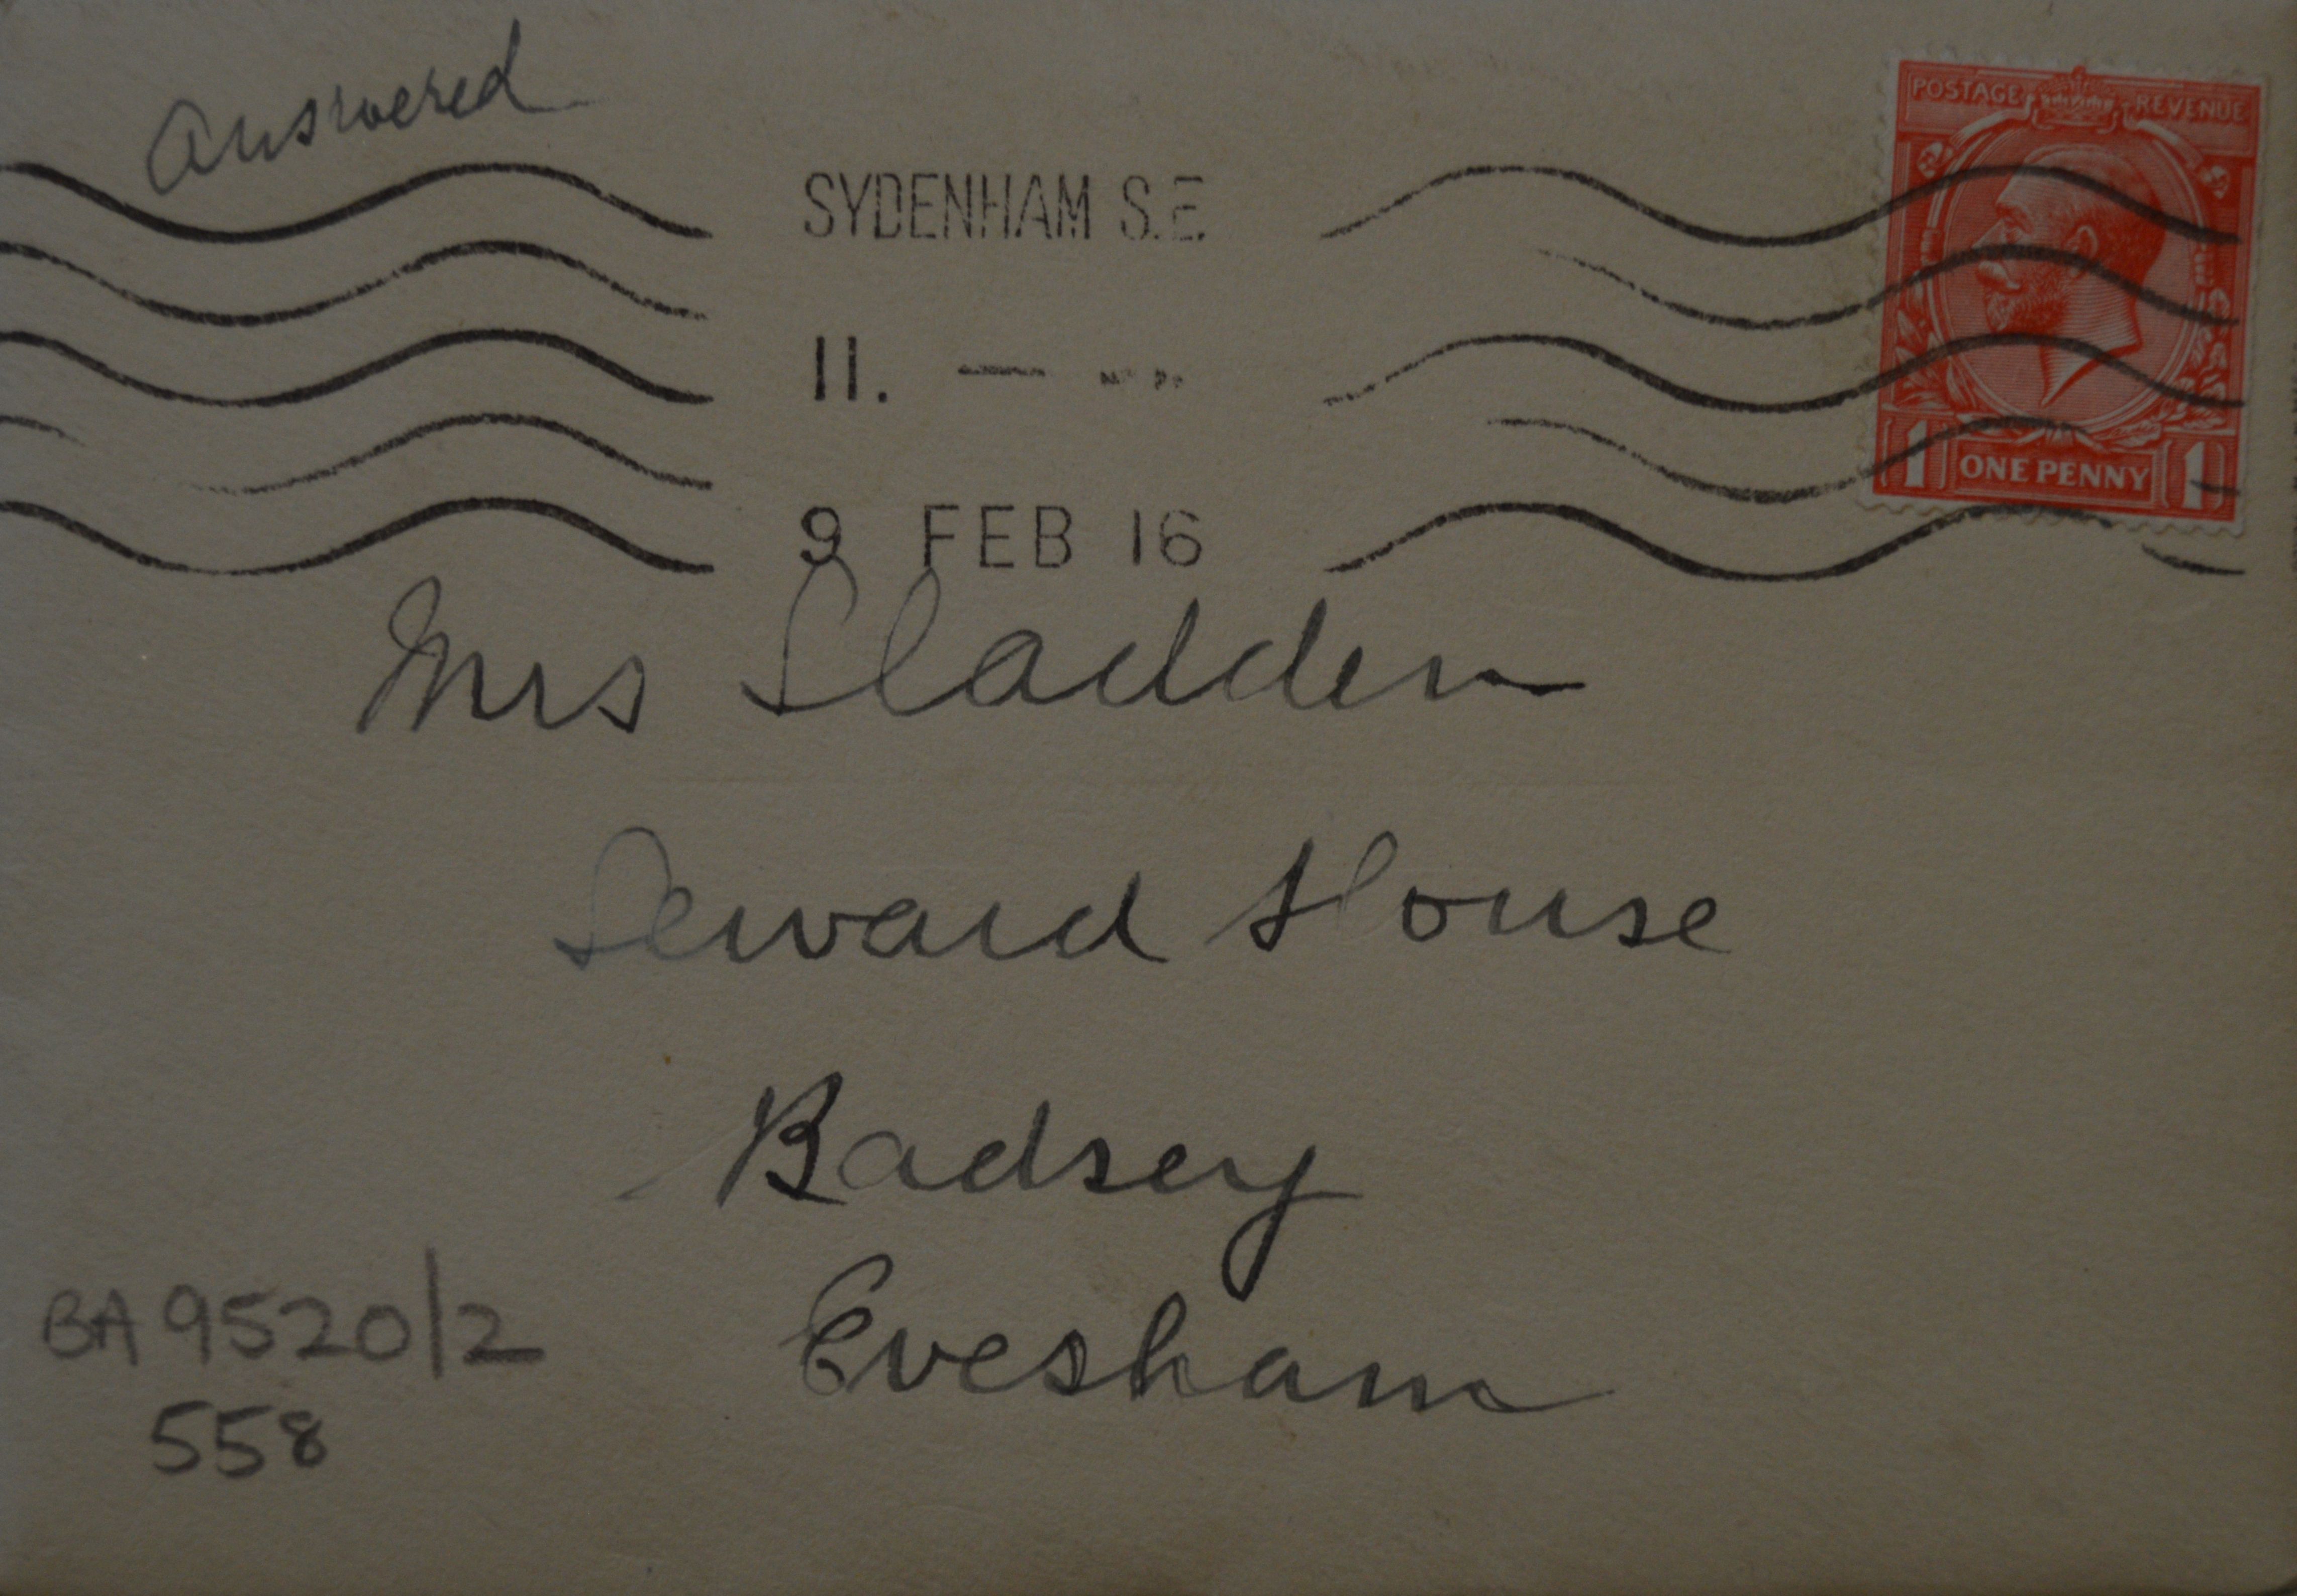 answered
POSTAGE REVENUE
SYDENHAM S.E.
11. —
9 FEB 16
1 ONE PENNY 1
Mrs Sladden
Seward House
Badsey
Evesham
BA 9520/2
558